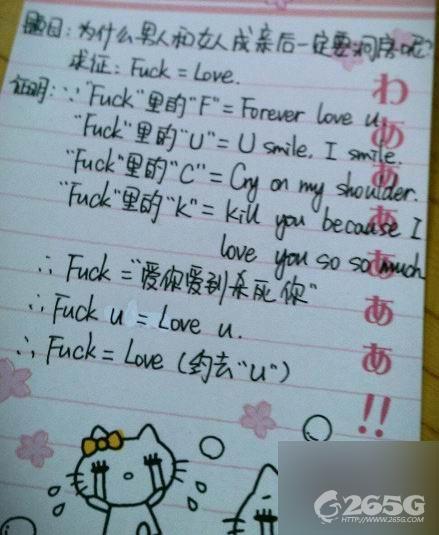 题目:为什么男人和女人成亲后一定要洞房呢?
求证:Fuck = Love.
证明:∵"Fuck"里的"F"= Forever love u.
"Fuck"里的"U"= U smile. I smile.
"Fuck"里的"C"= Cry on my shoulder.
"Fuck"里的"K"= kill you because I
love you so so much
∴ Fuck ="爱你爱到杀死你"
∴ Fuck u = Love u.
∴ Fuck = Love (约去"u")
わああああああ!!
265G
HTTP://WWW.265G.COM